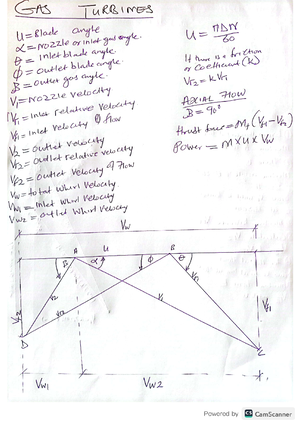 GAS TURBINES
U = Blade angle
α = Nozzle or inlet gas angle.
θ = Inlet blade angle.
φ = outlet blade angle.
β = outlet gas angle.
V1 = Nozzle velocity
Vr1 = Inlet relative velocity
Vf1 = Inlet velocity of flow
V2 = outlet velocity
Vr2 = outlet relative velocity
Vf2 = outlet velocity of flow
Vw = total whirl velocity
Vw1 = Inlet whirl velocity
Vw2 = outlet whirl velocity
U = πDN/60
If there is a friction
or coefficient (k)
Vr2 = kVr1
AXIAL FLOW
β = 90°
thrust force =
Power = M x U x Vw
Vw
A U B
β α φ θ
V1
Vf1
D
C
Vw1 Vw2
Powered by CS CamScanner